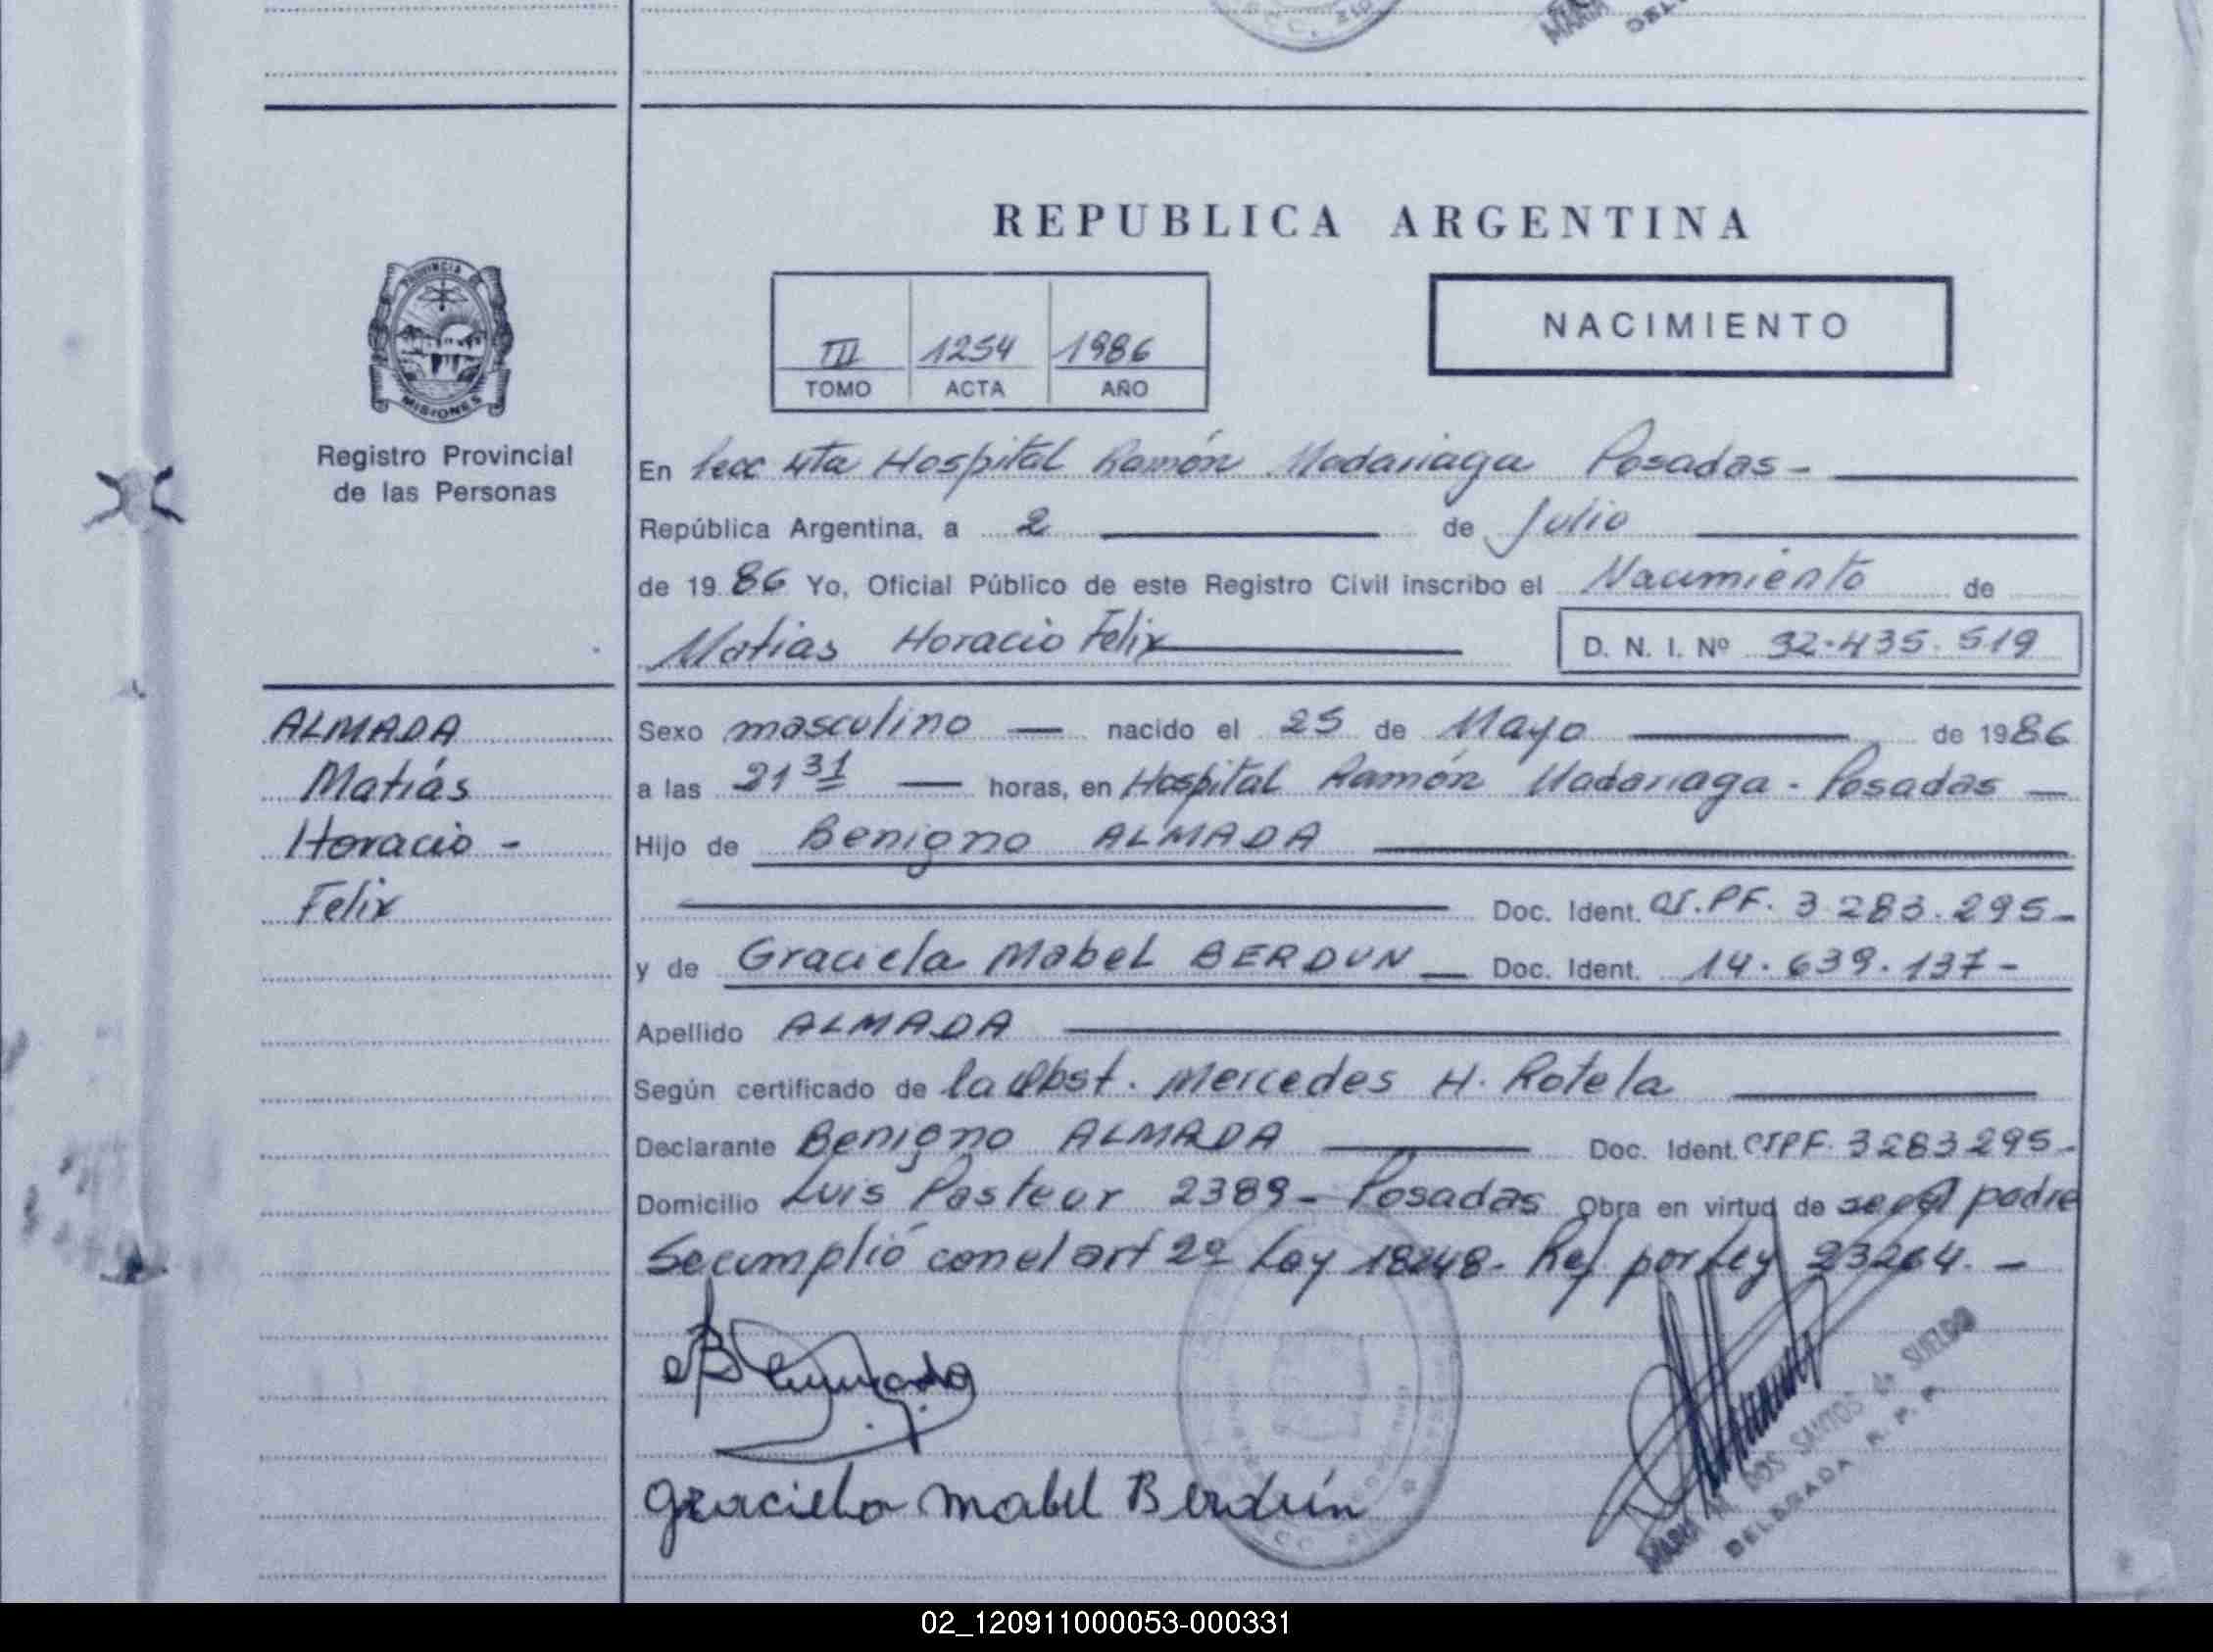 REPUBLICA ARGENTINA
PROVINCIA DE
MISIONES
Registro Provincial
de las Personas
III 1254 1986
TOMO ACTA AÑO
NACIMIENTO
En Secc 4ta Hospital Ramón Madariaga Posadas-
República Argentina, a 2 de Julio
de 1986 Yo, Oficial Público de este Registro Civil inscribo el Nacimiento de
Matias Horacio Felix D. N. I. Nº 32.435.519
ALMADA
Matiás
Horacio -
Felix
Sexo masculino — nacido el 25 de Mayo de 1986
a las 21 31 — horas, en Hospital Ramón Madariaga - Posadas —
Hijo de Benigno ALMADA
Doc. Ident. CI.PF. 3 283.295-
y de Graciela Mabel BERDUN — Doc. Ident. 14.639.137-
Apellido ALMADA
Según certificado de la Obst. Mercedes H. Rotela
Declarante Benigno ALMADA Doc. Ident. CIPF. 3283295-
Domicilio Luis Pasteur 2389 - Posadas Obra en virtud de ser el padre
Se cumplió con el art 2º Ley 18248- Ref por Ley 23264. -
Graciela Mabel Berdún
DOS SANTOS de SUELDO
DELEGADA R. P. P.
02_120911000053-000331